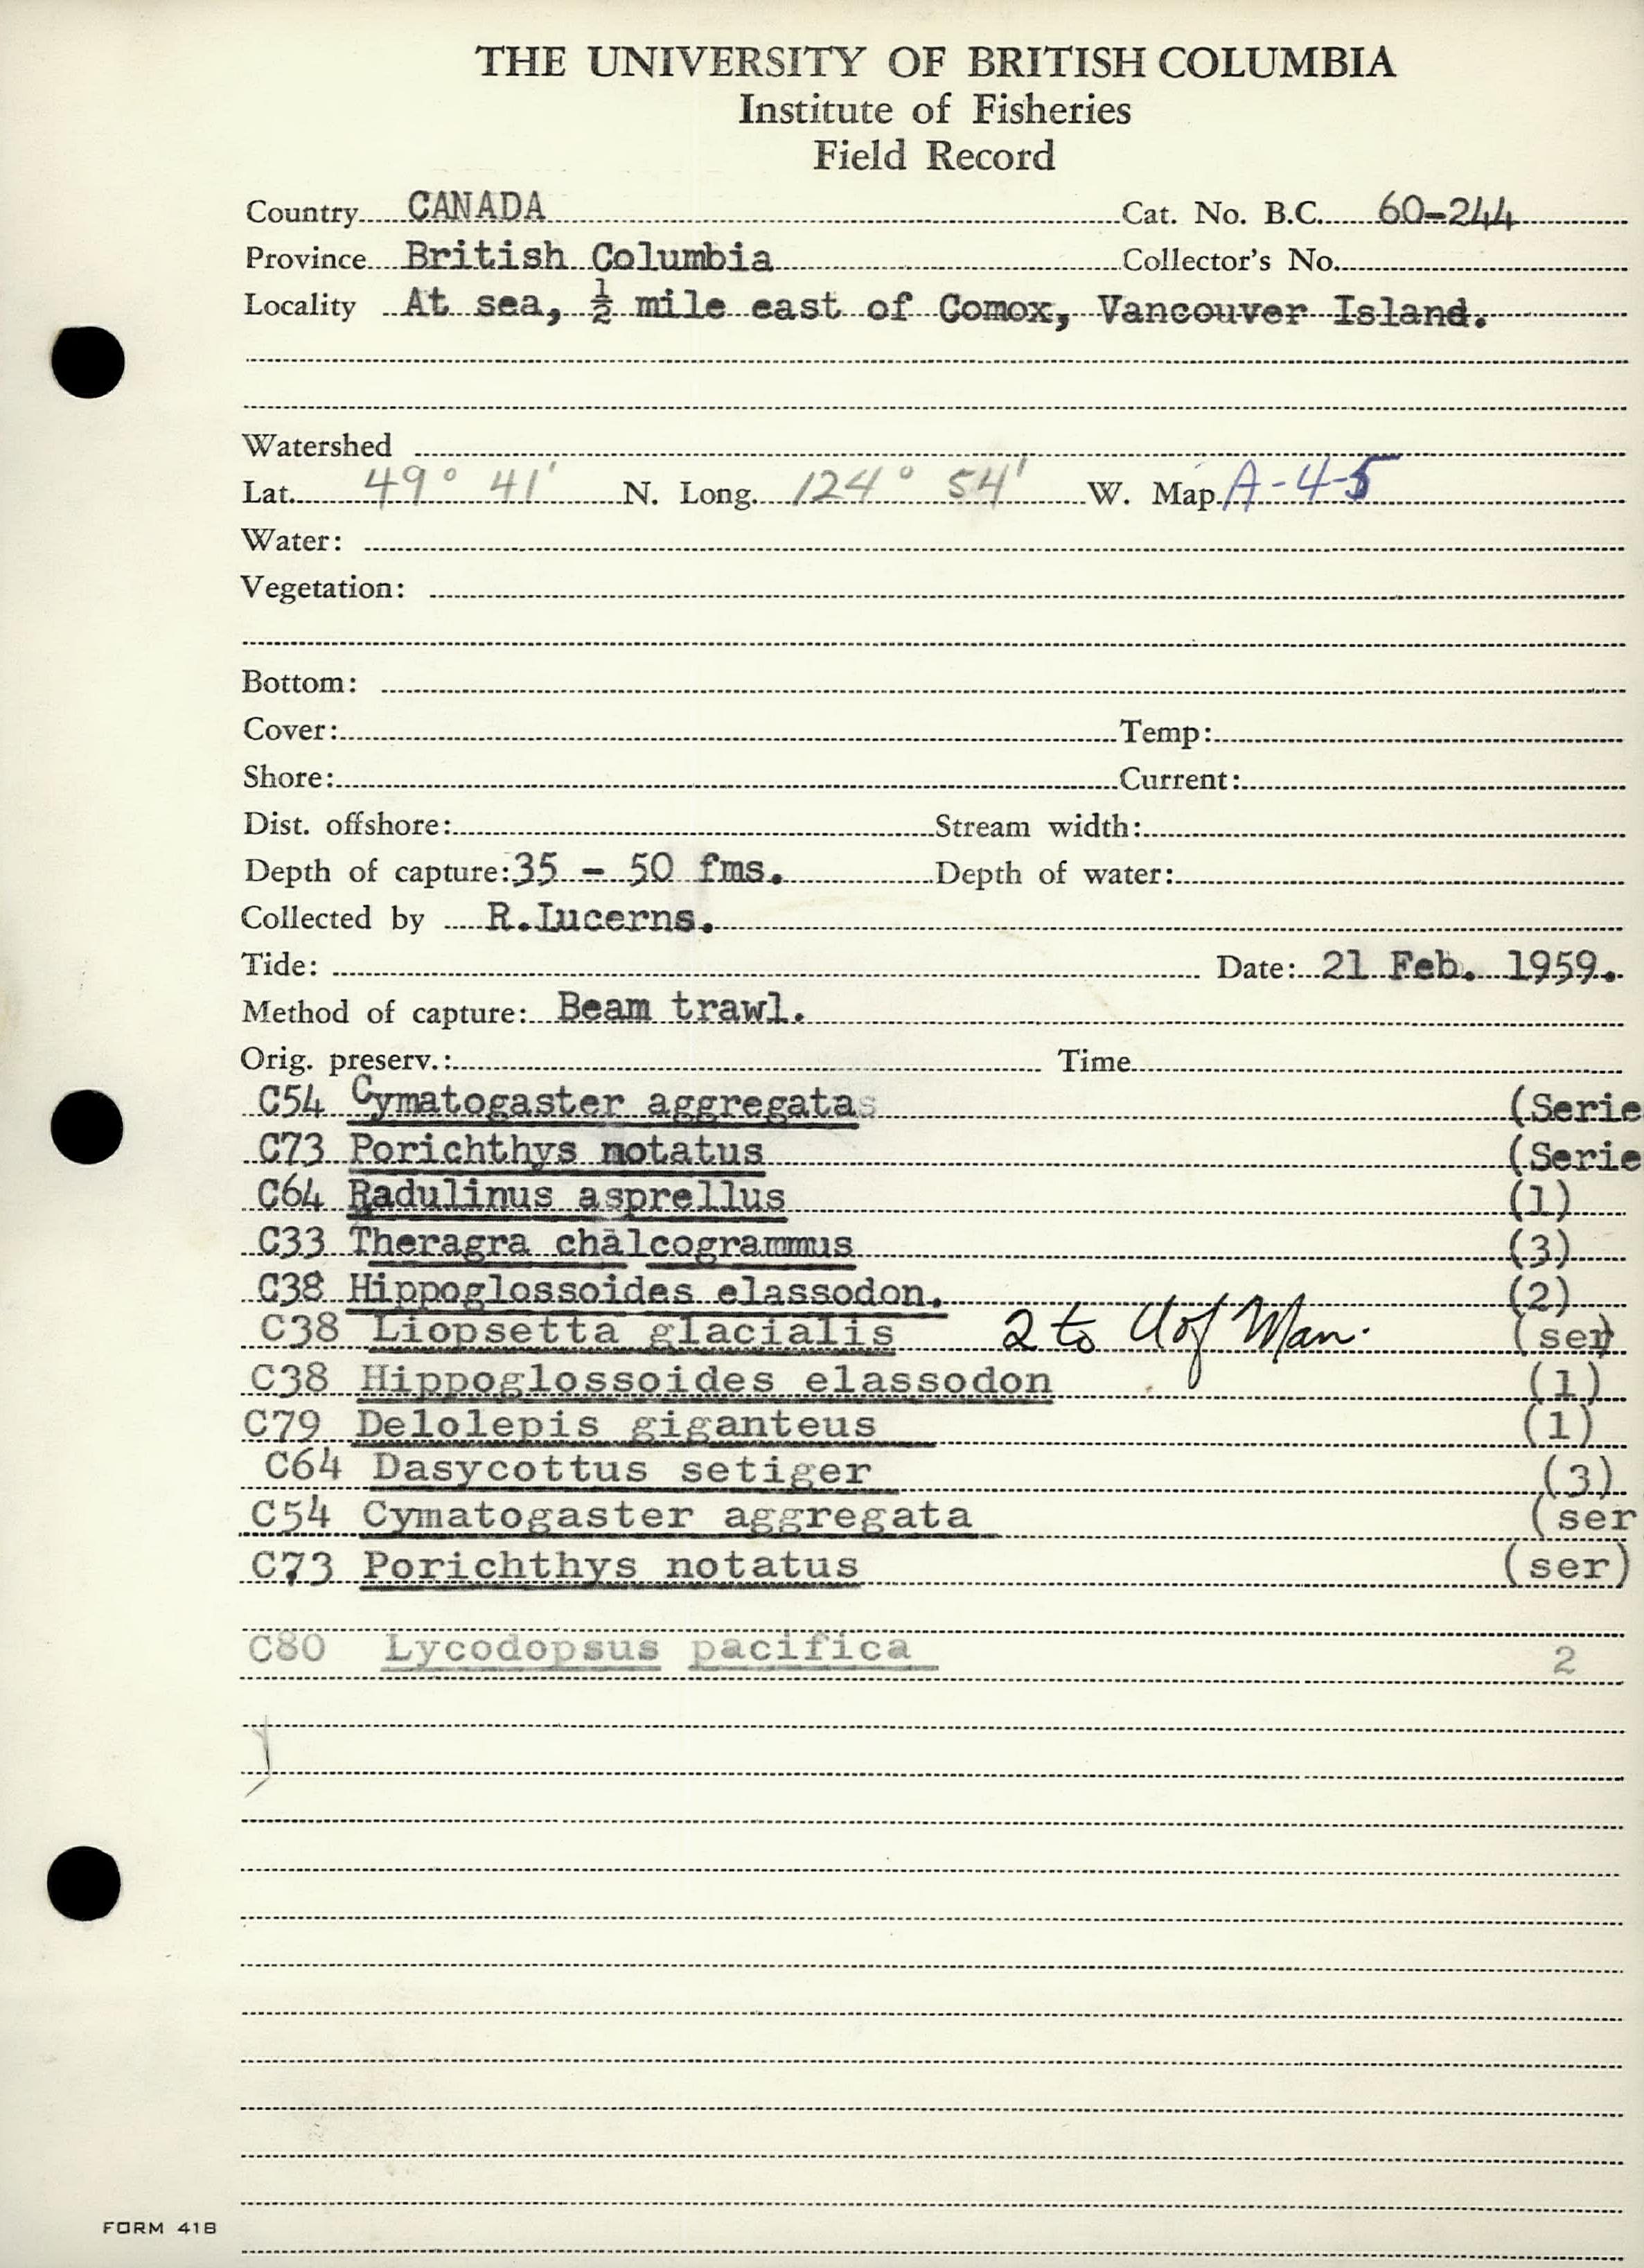 THE UNIVERSITY OF BRITISH COLUMBIA
Institute of Fisheries
Field Record
Country CANADA Cat. No. B.C. 60-244
Province British Columbia Collector's No.
Locality At sea, ½ mile east of Comox, Vancouver Island.
Watershed
Lat. 49° 41' N. Long. 124° 54' W. Map A-4-5
Water:
Vegetation:
Bottom:
Cover: Temp:
Shore: Current:
Dist. offshore: Stream width:
Depth of capture: 35 - 50 fms. Depth of water:
Collected by R.Lucerns.
Tide: Date: 21 Feb. 1959.
Method of capture: Beam trawl.
Orig. preserv.: Time
C54 Cymatogaster aggregatas (Serie
C73 Porichthys notatus (Serie
C64 Radulinus asprellus (1)
C33 Theragra chalcogrammus (3)
C38 Hippoglossoides elassodon. (2)
C38 Liopsetta glacialis 2 to U of Man. (ser)
C38 Hippoglossoides elassodon (1)
C79 Delolepis giganteus (1)
C64 Dasycottus setiger (3)
C54 Cymatogaster aggregata (ser
C73 Porichthys notatus (ser)
C80 Lycodopsus pacifica 2
FORM 41B